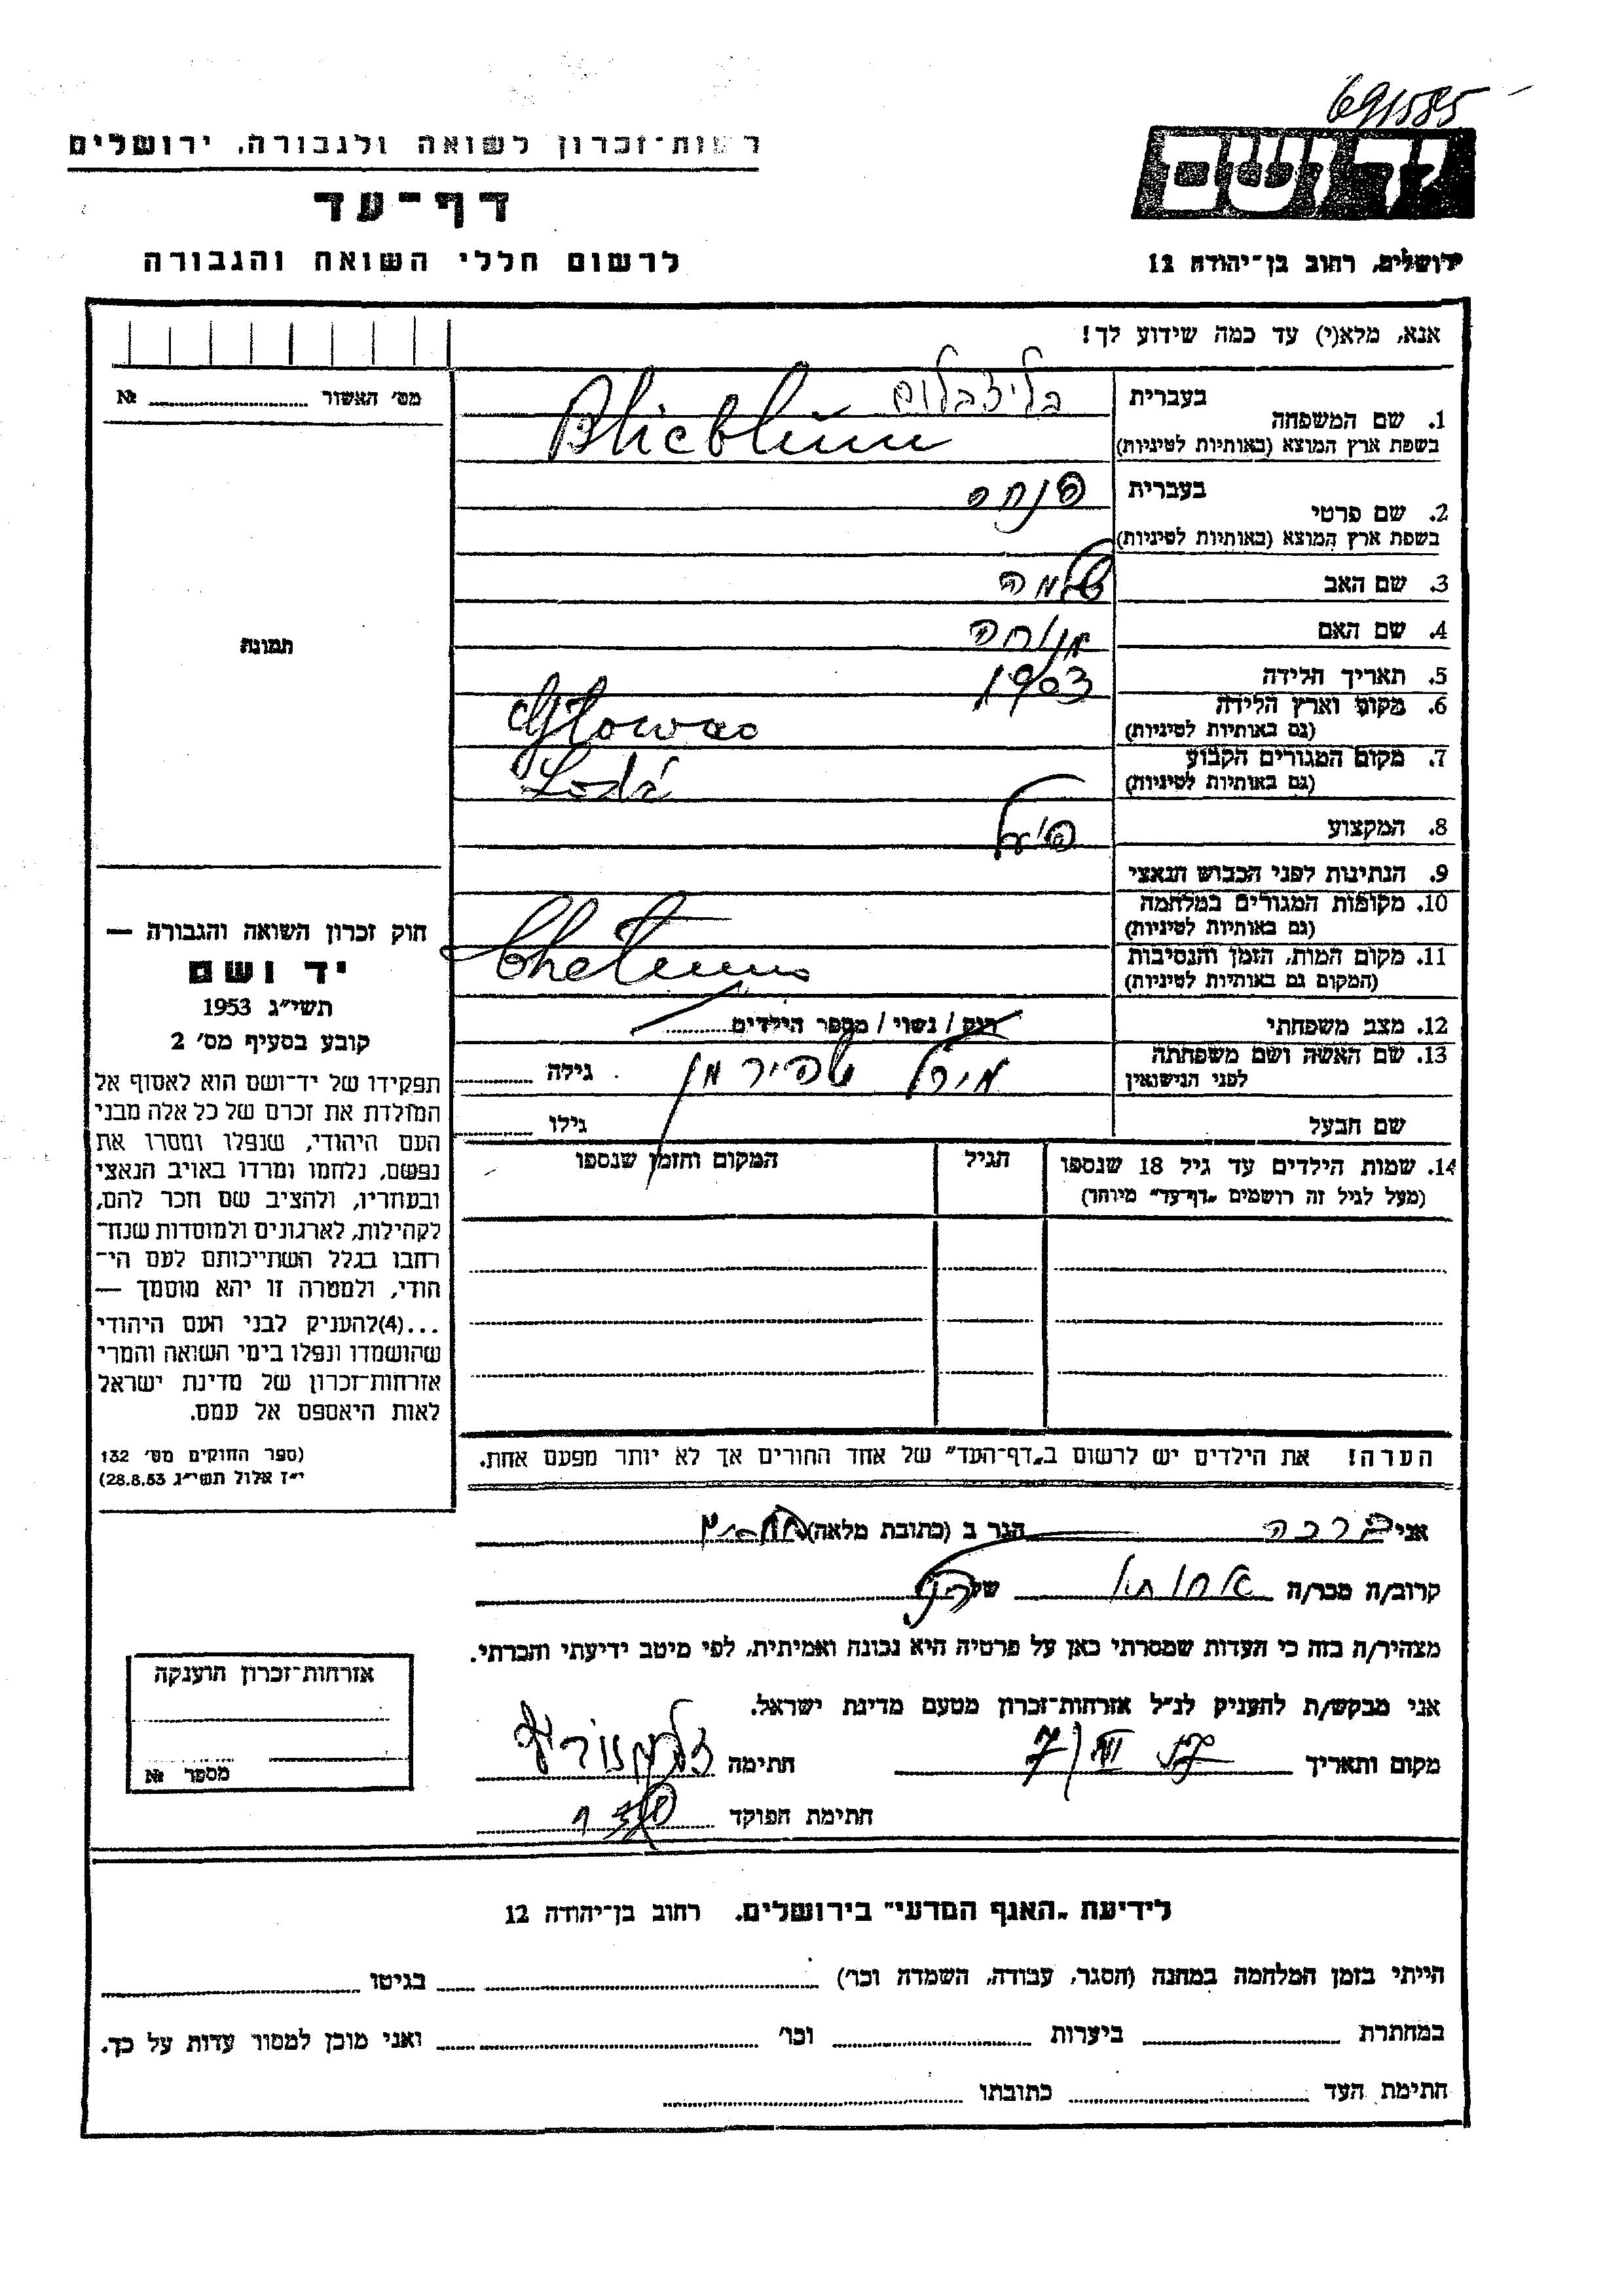 691585
רשות-זכרון לשואה ולגבורה, ירושלים
יד ושם
דף-עד
לרשום חללי השואה והגבורה
ירושלים, רחוב בן-יהודה 12
אנא, מלא(י) עד כמה שידוע לך!
מס' האשור №
1. שם המשפחה
בעברית בליצבלום
בשפת ארץ המוצא (באותיות לטיניות) Blicblum
2. שם פרטי
בעברית פנחס
בשפת ארץ המוצא (באותיות לטיניות)
3. שם האב שלמה
4. שם האם מנוחה
5. תאריך הלידה 1903
6. מקום וארץ הלידה
(גם באותיות לטיניות)
7. מקום המגורים הקבוע Lodź
(גם באותיות לטיניות)
8. המקצוע פועל
9. הנתינות לפני הכבוש הנאצי
10. מקומות המגורים במלחמה
(גם באותיות לטיניות)
11. מקום המות, הזמן והנסיבות
(המקום גם באותיות לטיניות)
12. מצב משפחתי רוק / נשוי / מספר הילדים
13. שם האשה ושם משפחתה
לפני הנישואין
גילה
שם הבעל גילו
14. שמות הילדים עד גיל 18 שנספו
(מעל לגיל זה רושמים „דף-עד" מיוחד)
הגיל
המקום והזמן שנספו
תמונה
חוק זכרון השואה והגבורה —
יד ושם
תשי"ג 1953
קובע בסעיף מס' 2
תפקידו של יד-ושם הוא לאסוף אל
המולדת את זכרם של כל אלה מבני
העם היהודי, שנפלו ומסרו את
נפשם, נלחמו ומרדו באויב הנאצי
ובעוזריו, ולהציב שם וזכר להם,
לקהילות, לארגונים ולמוסדות שנח־
רבו בגלל השתייכותם לעם הי־
הודי, ולמטרה זו יהא מוסמך —
...(4)להעניק לבני העם היהודי
שהושמדו ונפלו בימי השואה והמרי
אזרחות-זכרון של מדינת ישראל
לאות היאספם אל עמם.
(ספר החוקים מס' 132
י"ז אלול תשי"ג 28.8.53)
הערה! את הילדים יש לרשום ב„דף-העד" של אחד ההורים אך לא יותר מפעם אחת.
אני הגר ב (כתובת מלאה)
קרוב/ה מכר/ה של
מצהיר/ה בזה כי העדות שמסרתי כאן על פרטיה היא נכונה ואמיתית, לפי מיטב ידיעתי והכרתי.
אני מבקש/ת להעניק לנ"ל אזרחות-זכרון מטעם מדינת ישראל.
מקום ותאריך חתימה
חתימת הפוקד
אזרחות-זכרון הוענקה
מספר №
לידיעת „האגף המדעי" בירושלים. רחוב בן-יהודה 12
הייתי בזמן המלחמה במחנה (הסגר, עבודה, השמדה וכו') בגיטו
במחתרת ביערות וכו' ואני מוכן למסור עדות על כך.
חתימת העד כתובתו